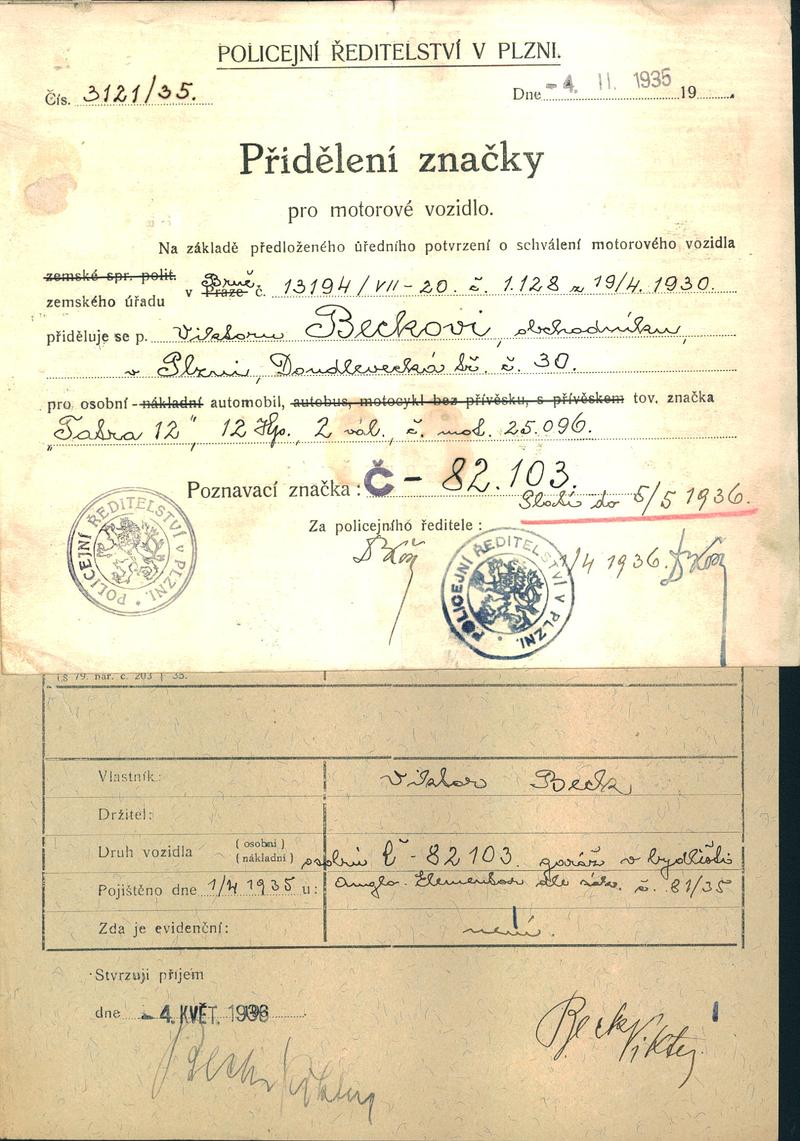 POLICEJNÍ ŘEDITELSTVÍ V PLZNI.
Čís. 3121/35.
Dne -4. II. 1935 19
Přidělení značky
pro motorové vozidlo.
Na základě předloženého úředního potvrzení o schválení motorového vozidla
zemské spr. polit.
zemského úřadu v Praze Brně č. 13194/VII-20. č. 1.128 z 19/4. 1930.
přiděluje se p. Viktoru Beckovi, obchodníku,
v Plzni, Doudlevecká tř. č. 30.
pro osobní - nákladní automobil, autobus, motocykl bez přívěsku, s přívěskem tov. značka
"Tatra 12", 12 Hp., 2 vál., č. mot. 25.096.
Poznavací značka: Č - 82.103.
Platí do 5/5 1936.
Za policejního ředitele:
1/4 1936.
POLICEJNÍ ŘEDITELSTVÍ v PLZNI.
POLICEJNÍ ŘEDITELSTVÍ V PLZNI.
(§ 79. nař. č. 203 | 35.
Vlastník: Viktor Beck
Držitel:
Druh vozidla (osobní) (nákladní) osobní Č - 82103. garáž v bydlišti
Pojištěno dne 1/4 1935 u: Anglo. Elementar dle č. 81/35
Zda je evidenční: není.
Stvrzuji příjem
dne -4. KVĚT. 1936
Beck Viktor
Beck Viktor